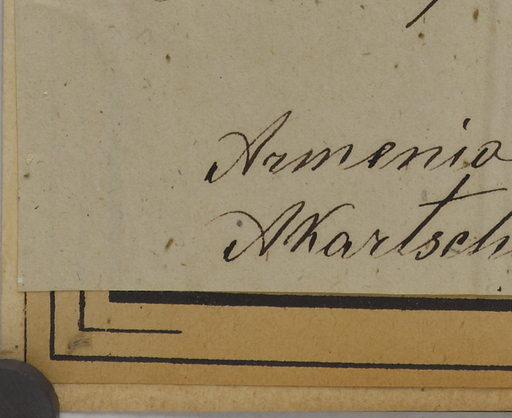 Armenia
AKartsch